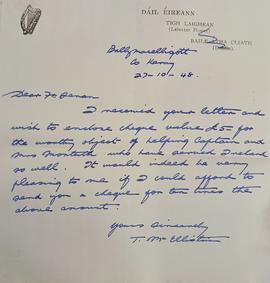 DÁIL ÉIREANN
TIGH LAIGHEAN
(Leinster House)
BAILE ÁTHA CLIATH
(Dublin)
Ballymacelligott
Co Kerry
27-10-48.
Dear Fr
I received your letter and
wish to enclose cheque value £5 for
the worthy object of helping Captain and
Mrs Monteith who have served Ireland
so well. It would indeed be very
pleasing to me if I could afford to
send you a cheque for ten times the
above amount.
Yours Sincerely
T. McEllistrim